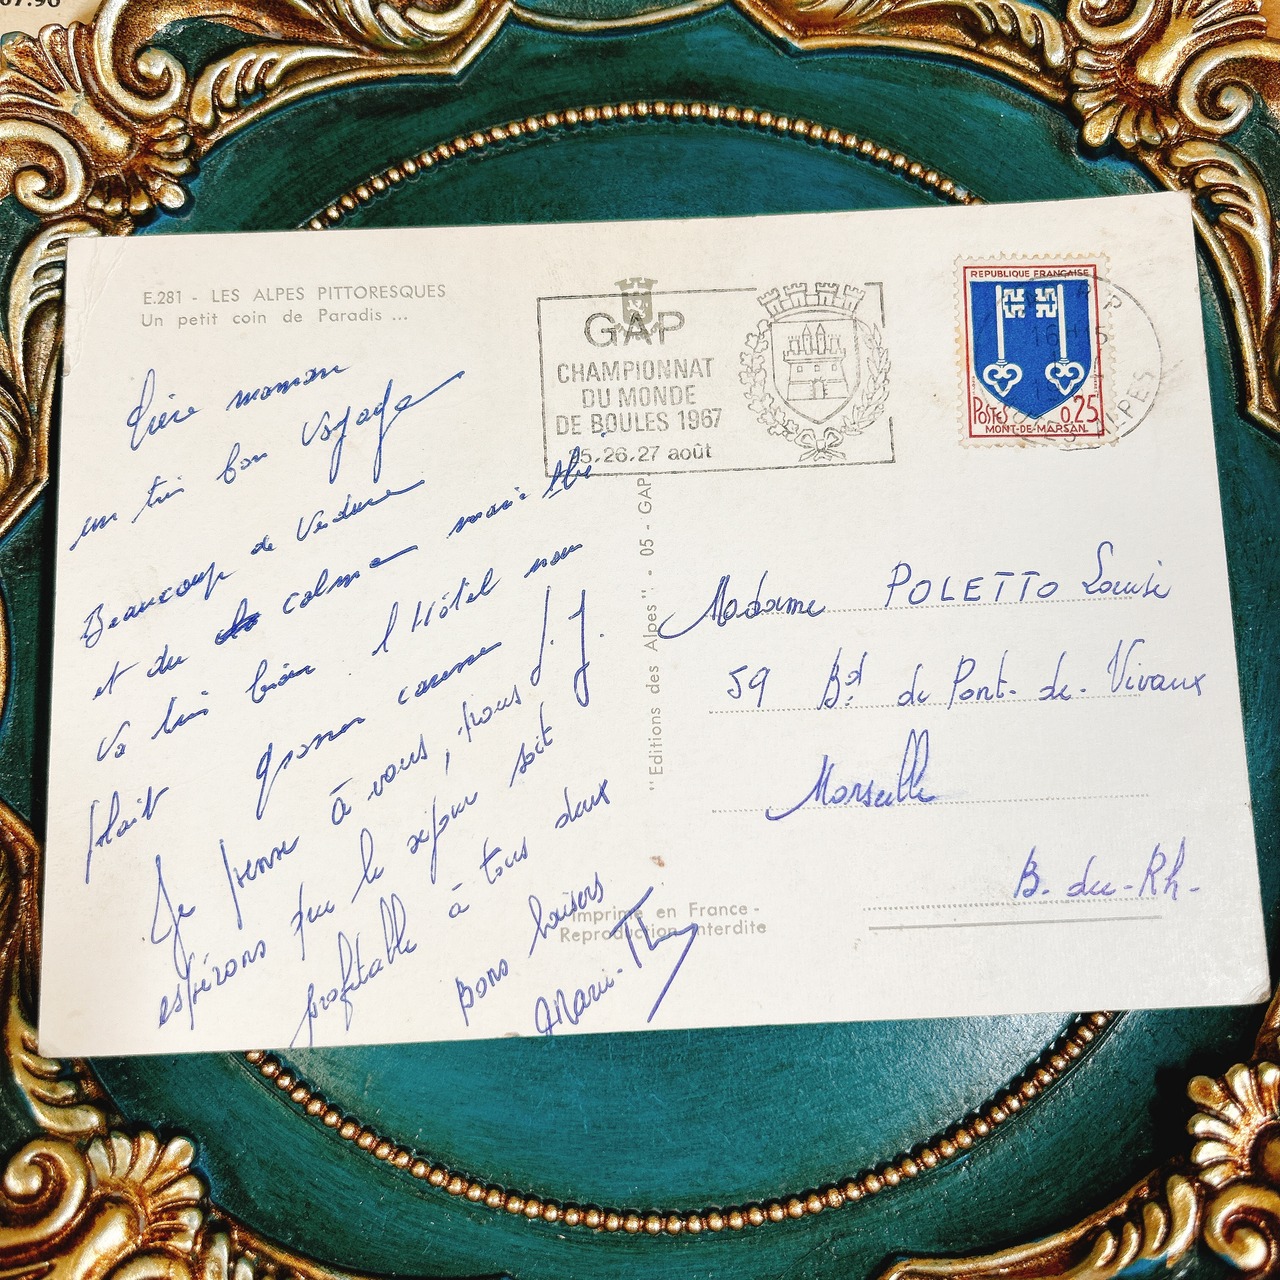 E.281 - LES ALPES PITTORESQUES
Un petit coin de Paradis ...
Chère maman
un très bon voyage
Beaucoup de verdure
et du calme
va très bien l'Hôtel nous
plait
Je pense à vous, nous
espérons que le séjour soit
profitable à tous deux
Bons baisers
Marie-Th
GAP
CHAMPIONNAT
DU MONDE
DE BOULES 1967
25.26.27 août
REPUBLIQUE FRANÇAISE
POSTES 0,25
MONT-DE-MARSAN
16H15
"Editions des Alpes" - 05 - GAP
Madame POLETTO Louise
59 Bd de Pont-de-Vivaux
Marseille
B-du-Rh-
Imprimé en France -
Reproduction interdite